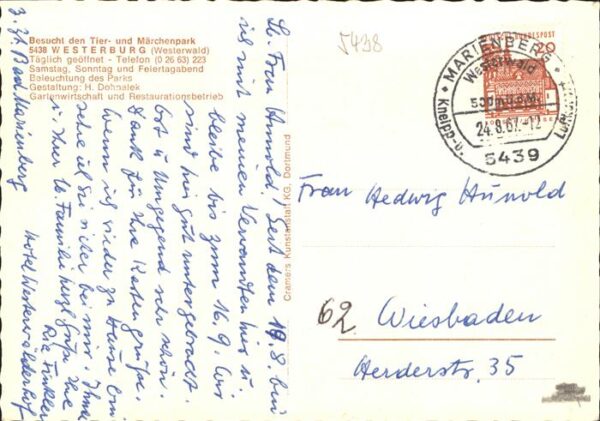 Besucht den Tier- und Märchenpark
5438 WESTERBURG (Westerwald)
Täglich geöffnet - Telefon (0 26 63) 223
Samstag, Sonntag und Feiertagabend
Beleuchtung des Parks
Gestaltung: H. Dohnalek
Gartenwirtschaft und Restaurationsbetrieb
5438
BUNDESPOST
20
MARIENBERG
Westerwald
500m ü.d.M.
24.8.67.-12
5439
Kneipp-u.
Cramers Kunstanstalt KG, Dortmund
Frau Hedwig Hunold
62 Wiesbaden
Herderstr. 35
3. Zt. Bad Marienberg
Hotel Westerwälderhof
Lb. Frau Hunold! Seit dem 19.8. bin
ich mit meinen Verwandten hier u.
bleibe bis zum 16.9. Wir
sind hier gut untergebracht.
u. Umgegend sehr schön.
Dank für Ihre Kartengrüße.
Wenn ich wieder zu Hause bin
sehe ich Sie sicher bei mir. Ihnen
u. Ihrer lb. Familie herzl. Grüße Ihre